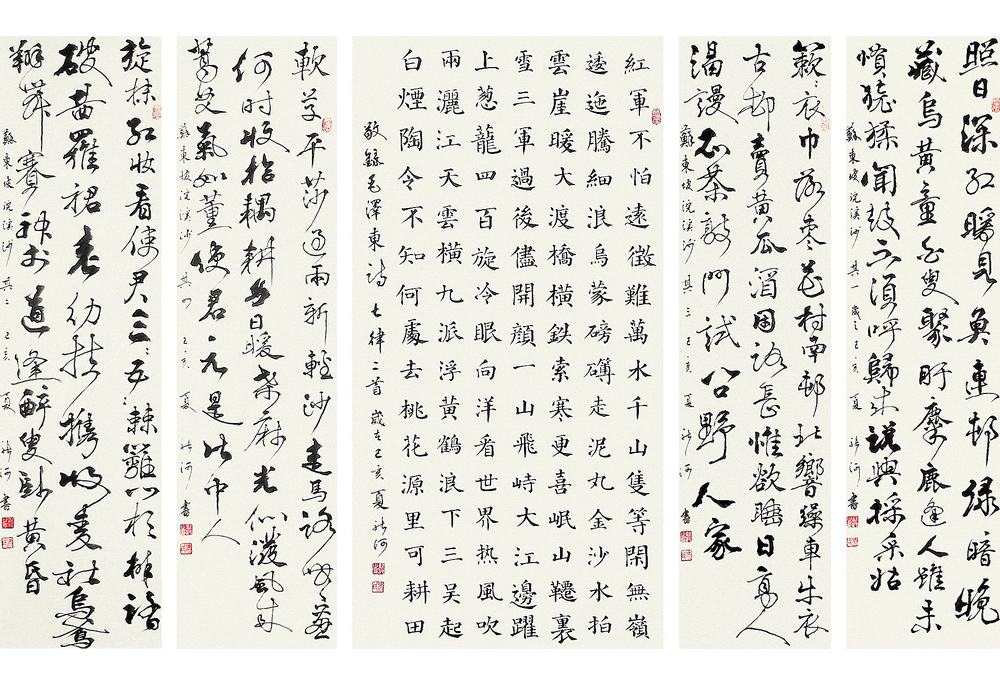 照日深紅暖見魚連邨綠暗晚
藏烏黃童白叟聚盱麋鹿逢人雖未
慣猿猱聞鼓不須呼歸來說與採桑姑
蘇東坡浣溪沙 其一 歲在己亥 夏 河書
簌簌衣巾落棗花村南邨北響繰車牛衣
古柳賣黃瓜酒困路長惟欲睡日高人
渴謾思茶敲門試問野人家
蘇東坡浣溪沙 其三 己亥 夏 河書
紅軍不怕遠徵難萬水千山隻等閑無嶺
逶迤騰細浪烏蒙磅礴走泥丸金沙水拍
雲崖暖大渡橋橫鉄索寒更喜岷山韆裏
雪三軍過後儘開顏一山飛峙大江邊躍
上葱蘢四百旋冷眼向洋看世界热風吹
雨灑江天雲橫九派浮黃鶴浪下三吳起
白煙陶令不知何處去桃花源里可耕田
敬錄毛澤東詩七律二首 歲在己亥夏 河
軟草平莎過雨新輕沙走馬路無塵
何時收拾耦耕身日暖桑麻光似潑風來
蒿艾氣如薰使君元是此中人
蘇東坡浣溪沙 其四 己亥 夏 河書
旋抹紅妝看使君三三五五棘籬門相排踏
破茜羅裙老幼扶攜收麥社烏鳶
翔舞賽神村道逢醉叟臥黃昏
蘇東坡浣溪沙 其二 己亥 夏 河書